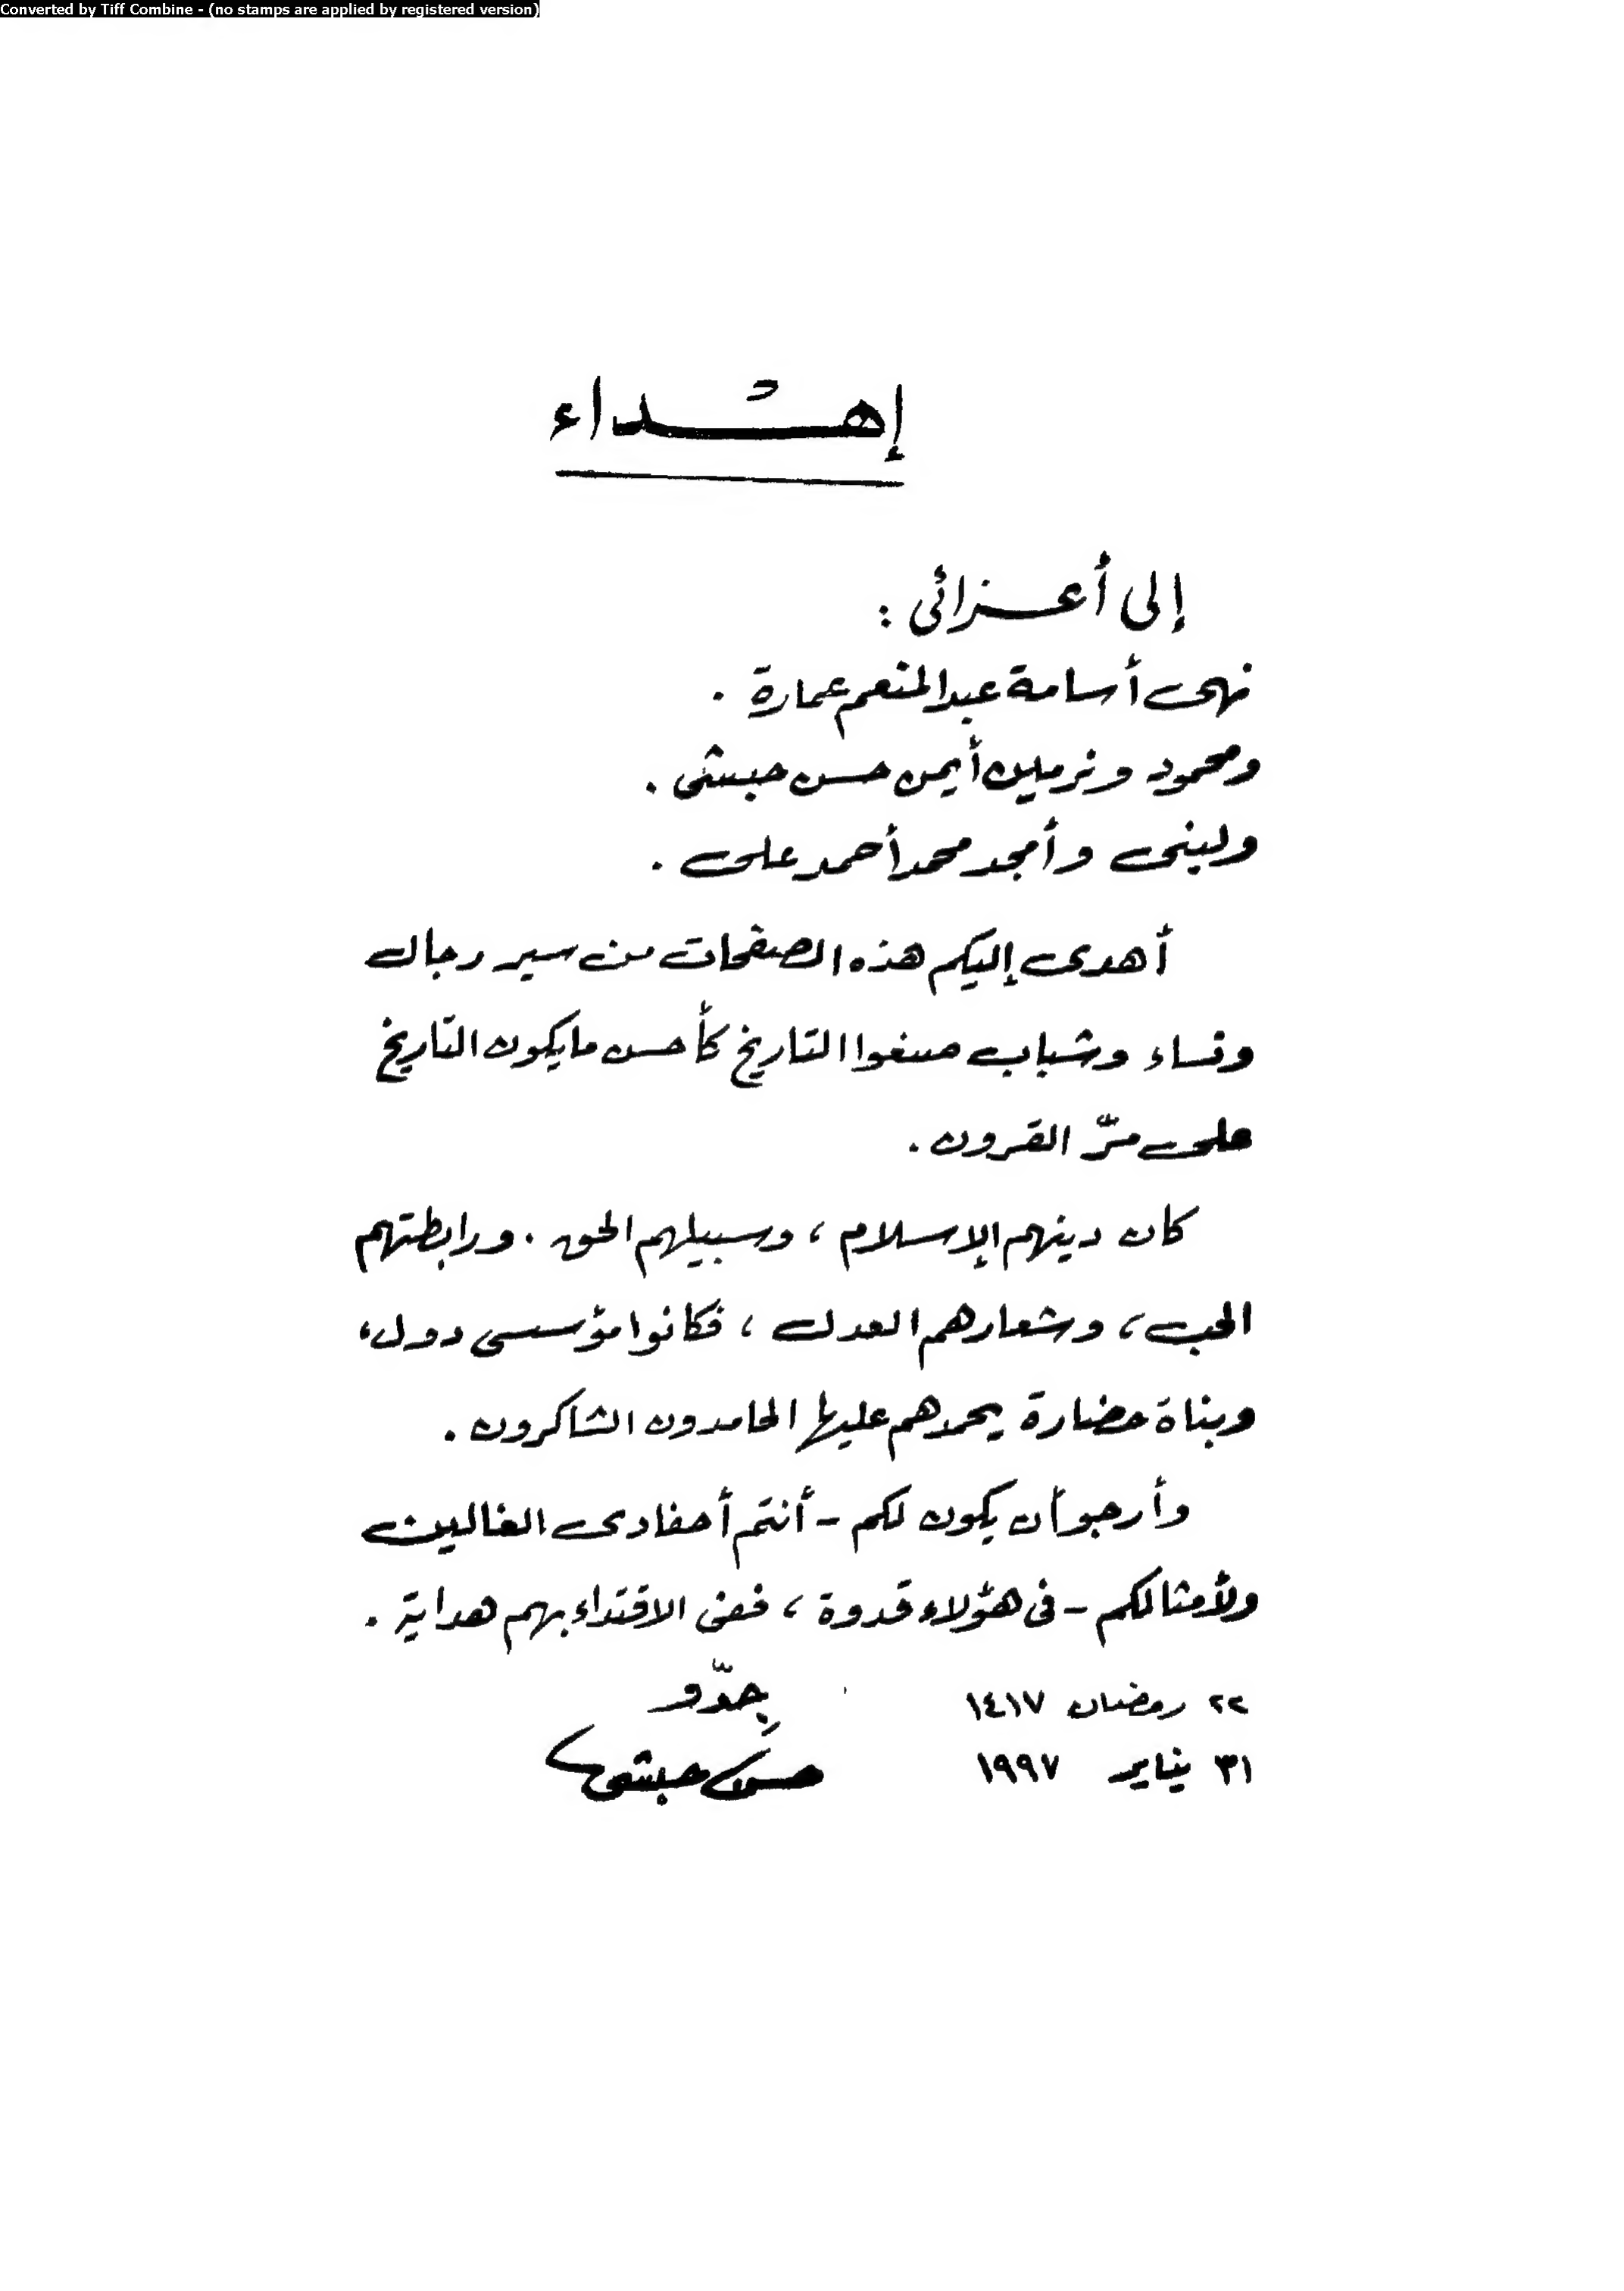 Converted by Tiff Combine - (no stamps are applied by registered version)
إهْداء
إلى أعزائى :
نهى أسامة عبدالمنعم عمارة .
ومحمود ونرمين أيمن حسن حبشى .
ولبنى وأمجد محمد أحمد على .
أهدى إليكم هذه الصفحات من سير رجال
ونساء وشباب صنعوا التاريخ كأحسن ما يكون التاريخ
على مرّ القرون .
كان دينهم الإسلام ، وسبيلهم الحق . ورابطتهم
الحب ، وشعارهم العدل ، فكانوا مؤسسى دول ،
وبناة حضارة يحمدهم عليها الحامدون الشاكرون .
وأرجو أن يكون لكم - أنتم أحفادى الغاليين
ولأمثالكم - فى هؤلاء قدوة ، ففى الاقتداء بهم هداية .
٢٢ رمضان ١٤١٧ جِدّو
٣١ يناير ١٩٩٧ حسن حبشى